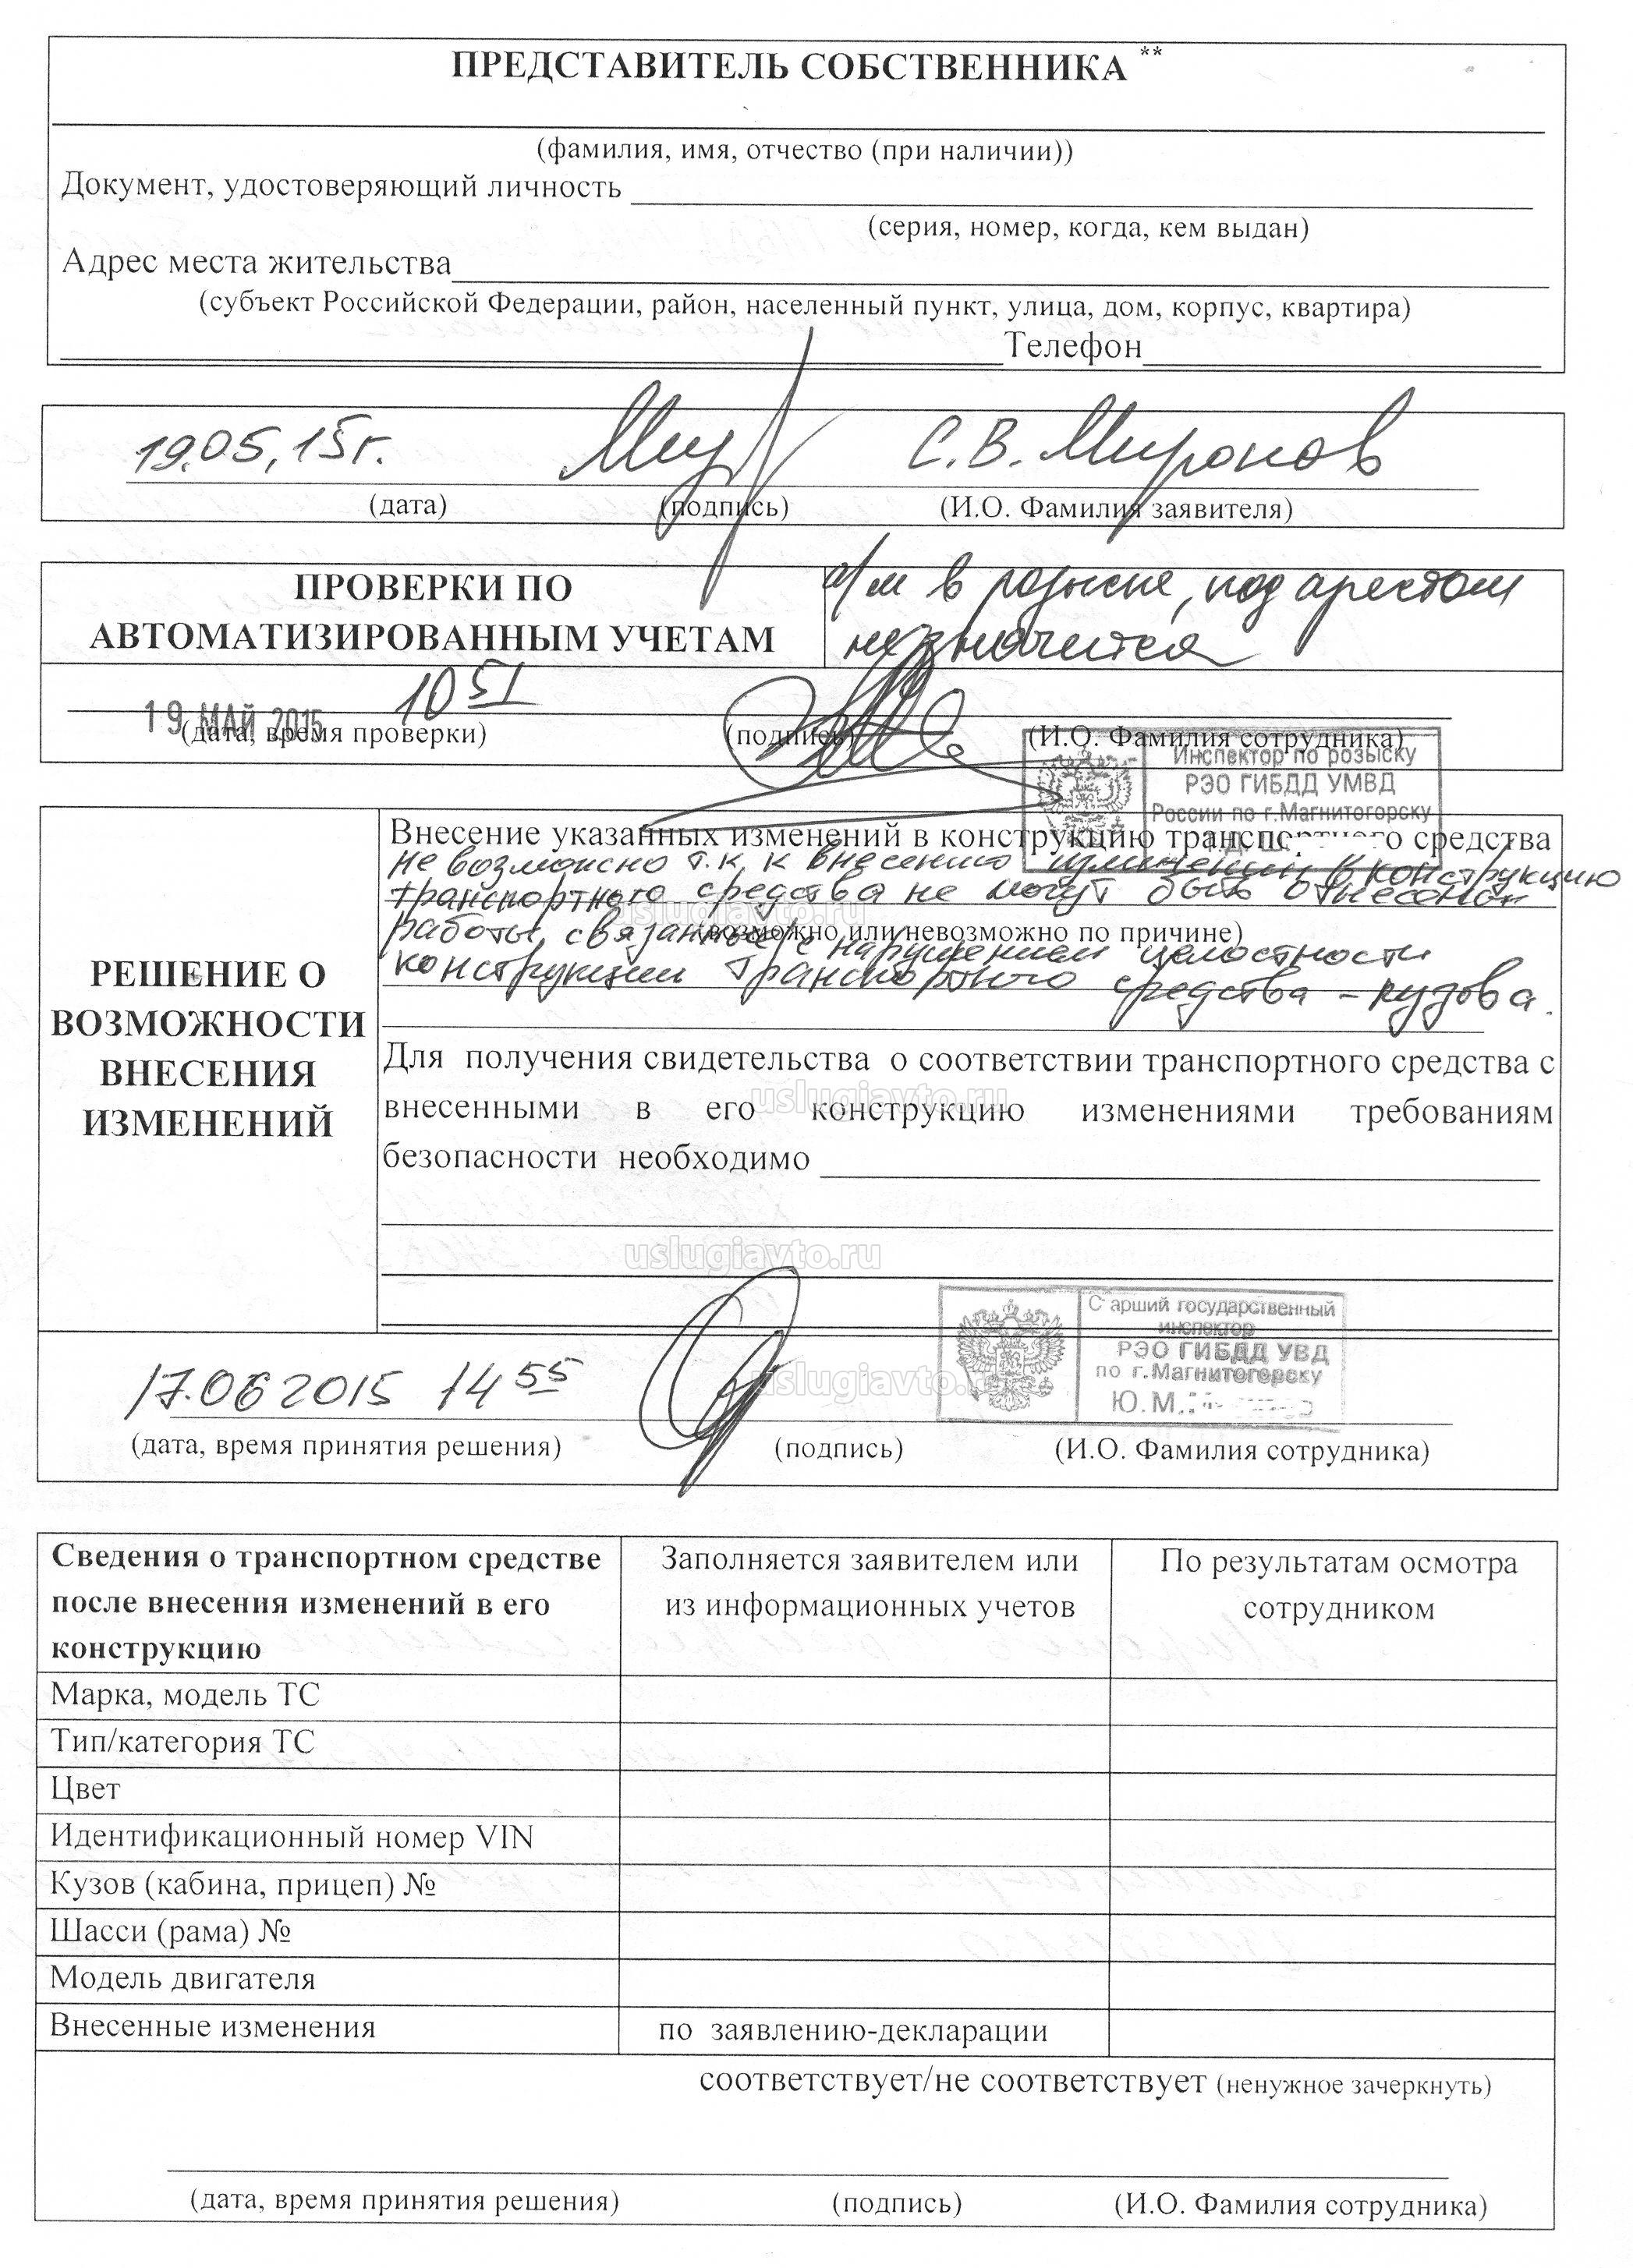 ПРЕДСТАВИТЕЛЬ СОБСТВЕННИКА **
(фамилия, имя, отчество (при наличии))
Документ, удостоверяющий личность
(серия, номер, когда, кем выдан)
Адрес места жительства
(субъект Российской Федерации, район, населенный пункт, улица, дом, корпус, квартира)
Телефон
19.05.15г. С.В. Миронов
(дата) (подпись) (И.О. Фамилия заявителя)
ПРОВЕРКИ ПО
АВТОМАТИЗИРОВАННЫМ УЧЕТАМ
а/м в розыске, под арестом
не значится
19 МАЙ 2015 10 51
(дата, время проверки) (подпись) (И.О. Фамилия сотрудника)
Инспектор по розыску
РЭО ГИБДД УМВД
России по г.Магнитогорску
РЕШЕНИЕ О
ВОЗМОЖНОСТИ
ВНЕСЕНИЯ
ИЗМЕНЕНИЙ
Внесение указанных изменений в конструкцию транспортного средства
не возможно т.к. к внесению изменений в конструкцию
транспортного средства не могут быть отнесены
(возможно или невозможно по причине)
работы, связанные с нарушением целостности
конструкции транспортного средства - кузова.
Для получения свидетельства о соответствии транспортного средства с
внесенными в его конструкцию изменениями требованиям
безопасности необходимо
uslugiavto.ru
uslugiavto.ru
uslugiavto.ru
uslugiavto.ru
Старший государственный
инспектор
РЭО ГИБДД УВД
по г.Магнитогорску
Ю.М.
17.06 2015 14 55
(дата, время принятия решения) (подпись) (И.О. Фамилия сотрудника)
Сведения о транспортном средстве
после внесения изменений в его
конструкцию
Заполняется заявителем или
из информационных учетов
По результатам осмотра
сотрудником
Марка, модель ТС
Тип/категория ТС
Цвет
Идентификационный номер VIN
Кузов (кабина, прицеп) №
Шасси (рама) №
Модель двигателя
Внесенные изменения по заявлению-декларации
соответствует/не соответствует (ненужное зачеркнуть)
(дата, время принятия решения) (подпись) (И.О. Фамилия сотрудника)